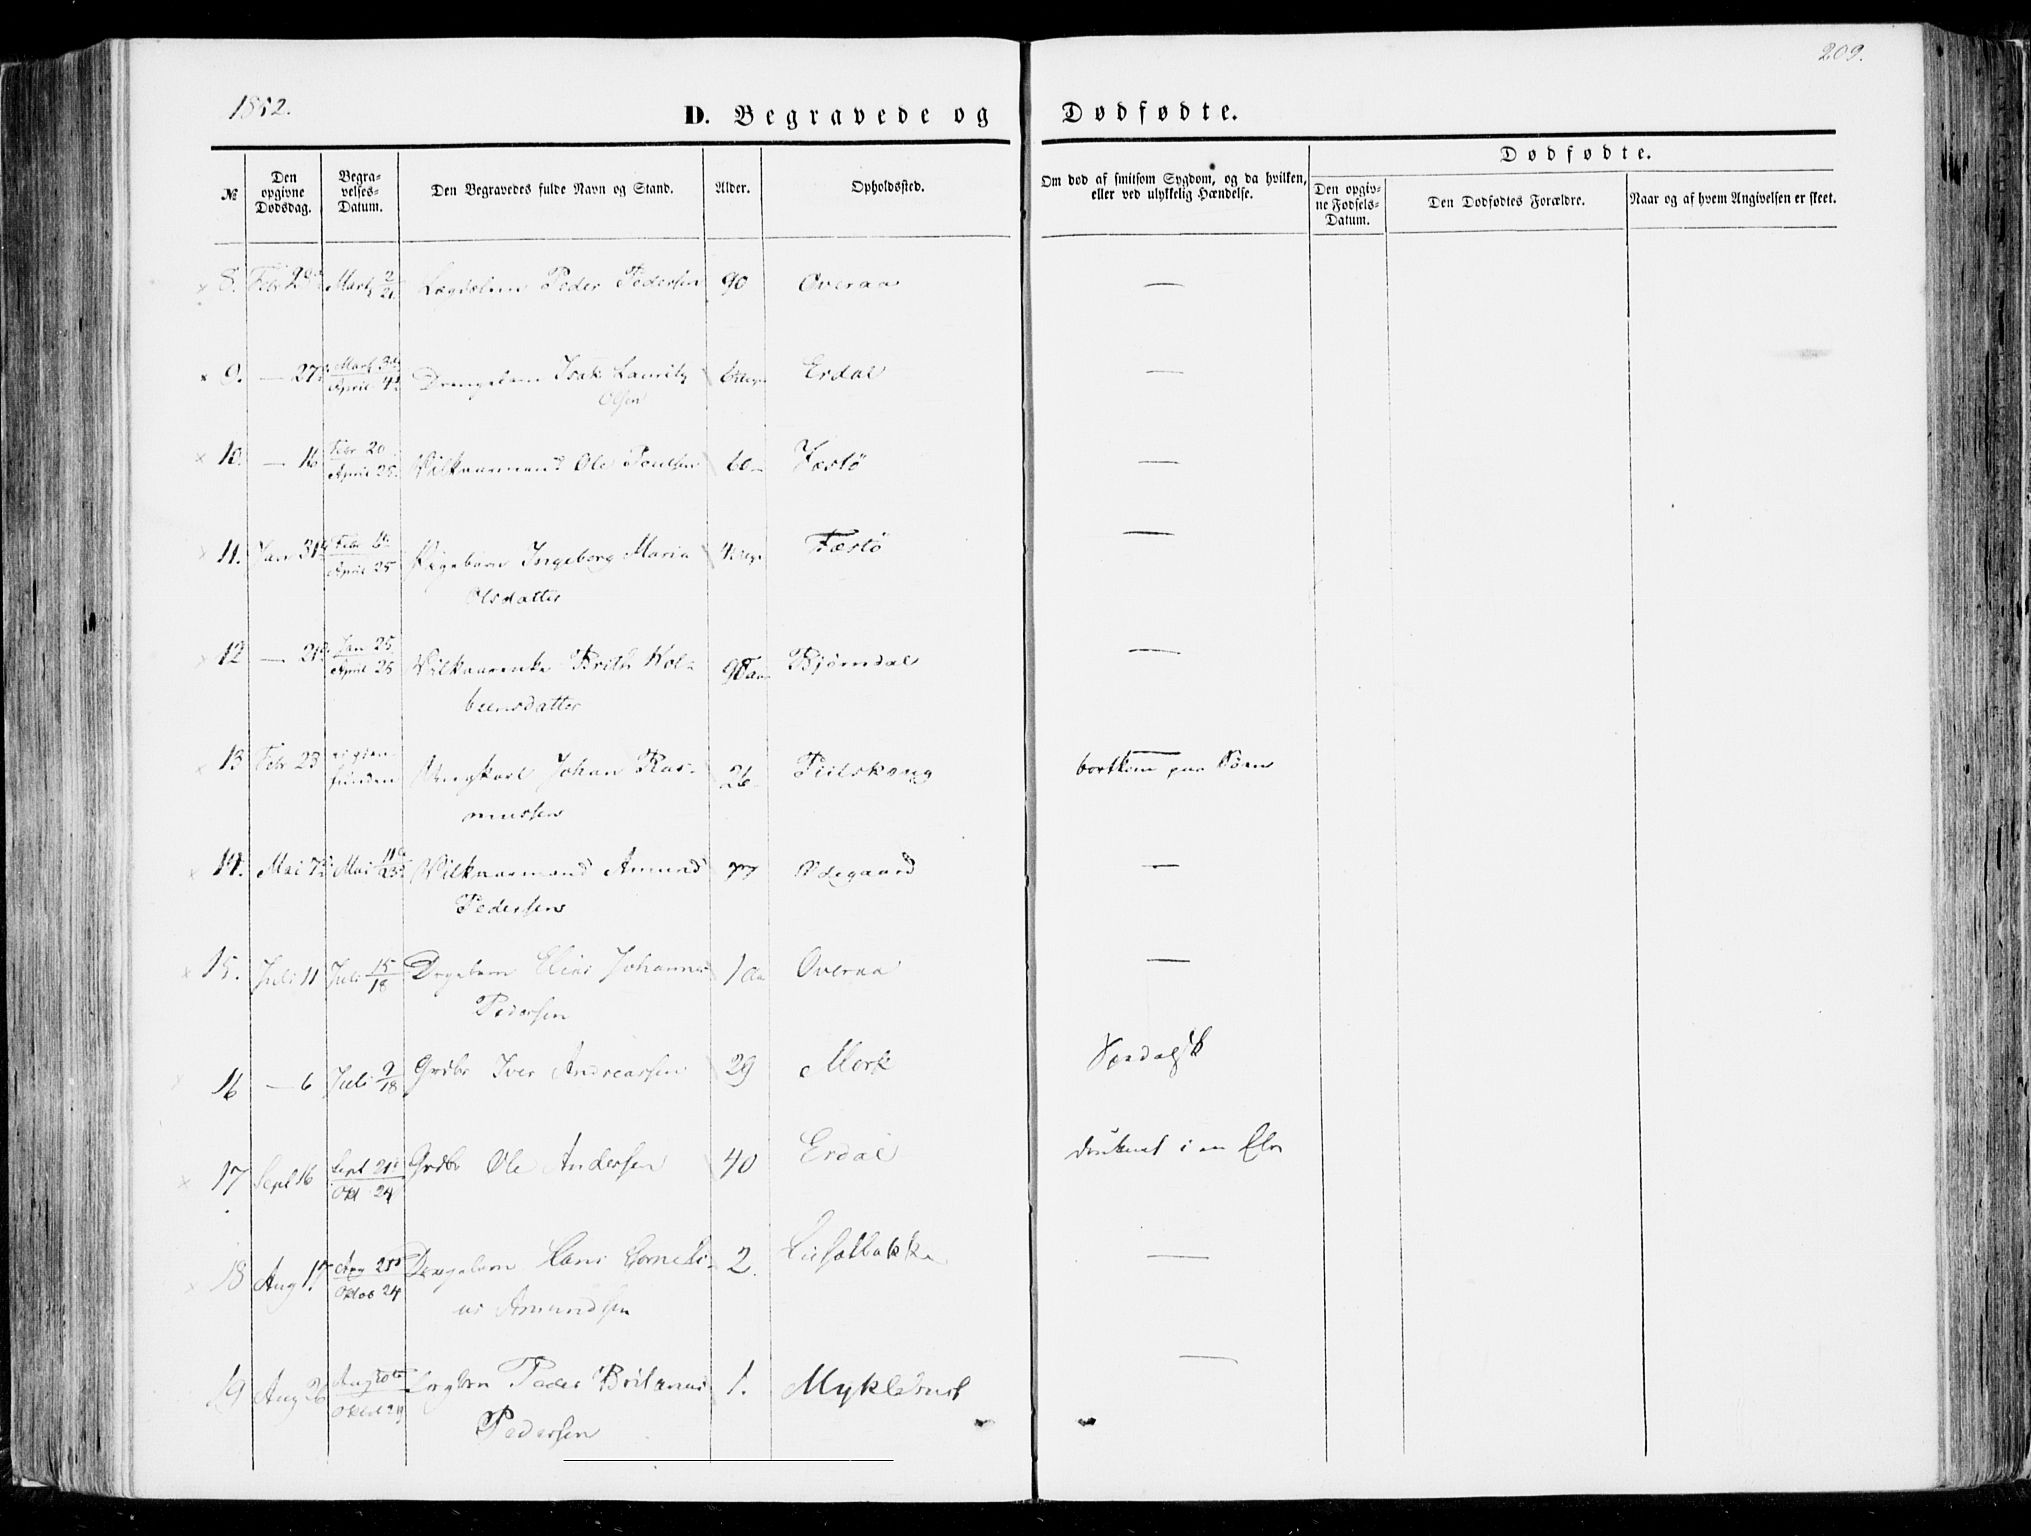 209.
1852.
D. Begravede og Dødfødte.
№
Den opgivne Dødsdag.
Begravelses-Datum.
Den Begravedes fulde Navn og Stand.
Alder.
Opholdssted.
Om død af smitsom Sygdom, og da hvilken, eller ved ulykkelig Hændelse.
Dødfødte.
Den opgivne Fødsels-Datum.
Den Dødfødtes Forældre.
Naar og af hvem Angivelsen er skeet.
8. Febr Marts 2/21 Lægdslem Peder Pedersen 90 Overaa —
9. — 27 Marts April 4 Drengebarn Isak Lauritz Erdal —
Olsen
10. — 16 Febr 20 April 25 Vilkaarmand Ole Poulsen Festø —
11. Jan 31 Febr April 25 Pigebarn Ingeborg Maria Festø —
Olsdatter
12 — 21 Jan 25 April 25 Vilkaarenke Brith Kol- Bjørndal —
beensdatter
13 Febr 23 ei gjen- funden Ungkarl Johan Ras- 26 Pielskong bortkom paa Søen
mussen
14. Mai 7 Mai Vilkaarmand Amund 77 Ødegaard —
Pedersen
15. Juli 11 Juli 15/18 Drgebarn Elias Johannes 1 Aa Overaa —
Pedersen
16 — 6 Juli 9/18 Grdbr Iver Andreassen 29 Mork
17 Sept 16 Sept 21 Okt 24 Grdbr Ole Andersen 40 Erdal druknet i en Elv
18 Aug 17 Aug 25 Oktob 24 Drengebarn Hans Corneli- 2. —
us Amundsen
19 Aug 26 Aug Oktob 24 Peder 1. Myklebust —
Pedersen